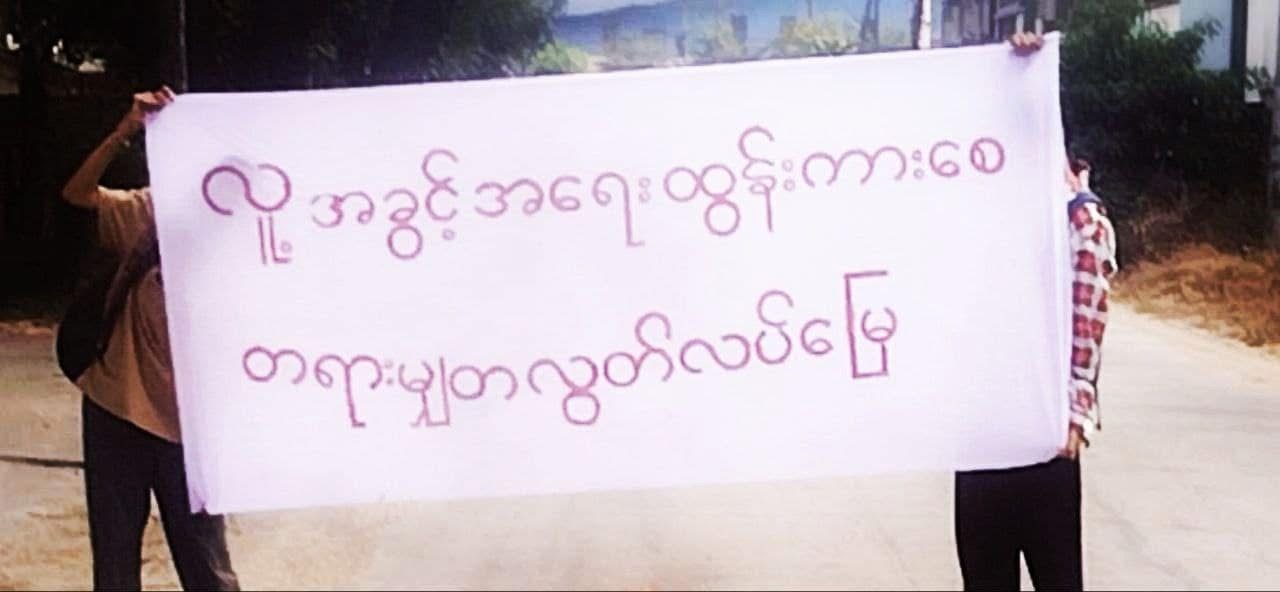 လူ့အခွင့်အရေးထွန်းကားစေ
တရားမျှတလွတ်လပ်မြေ